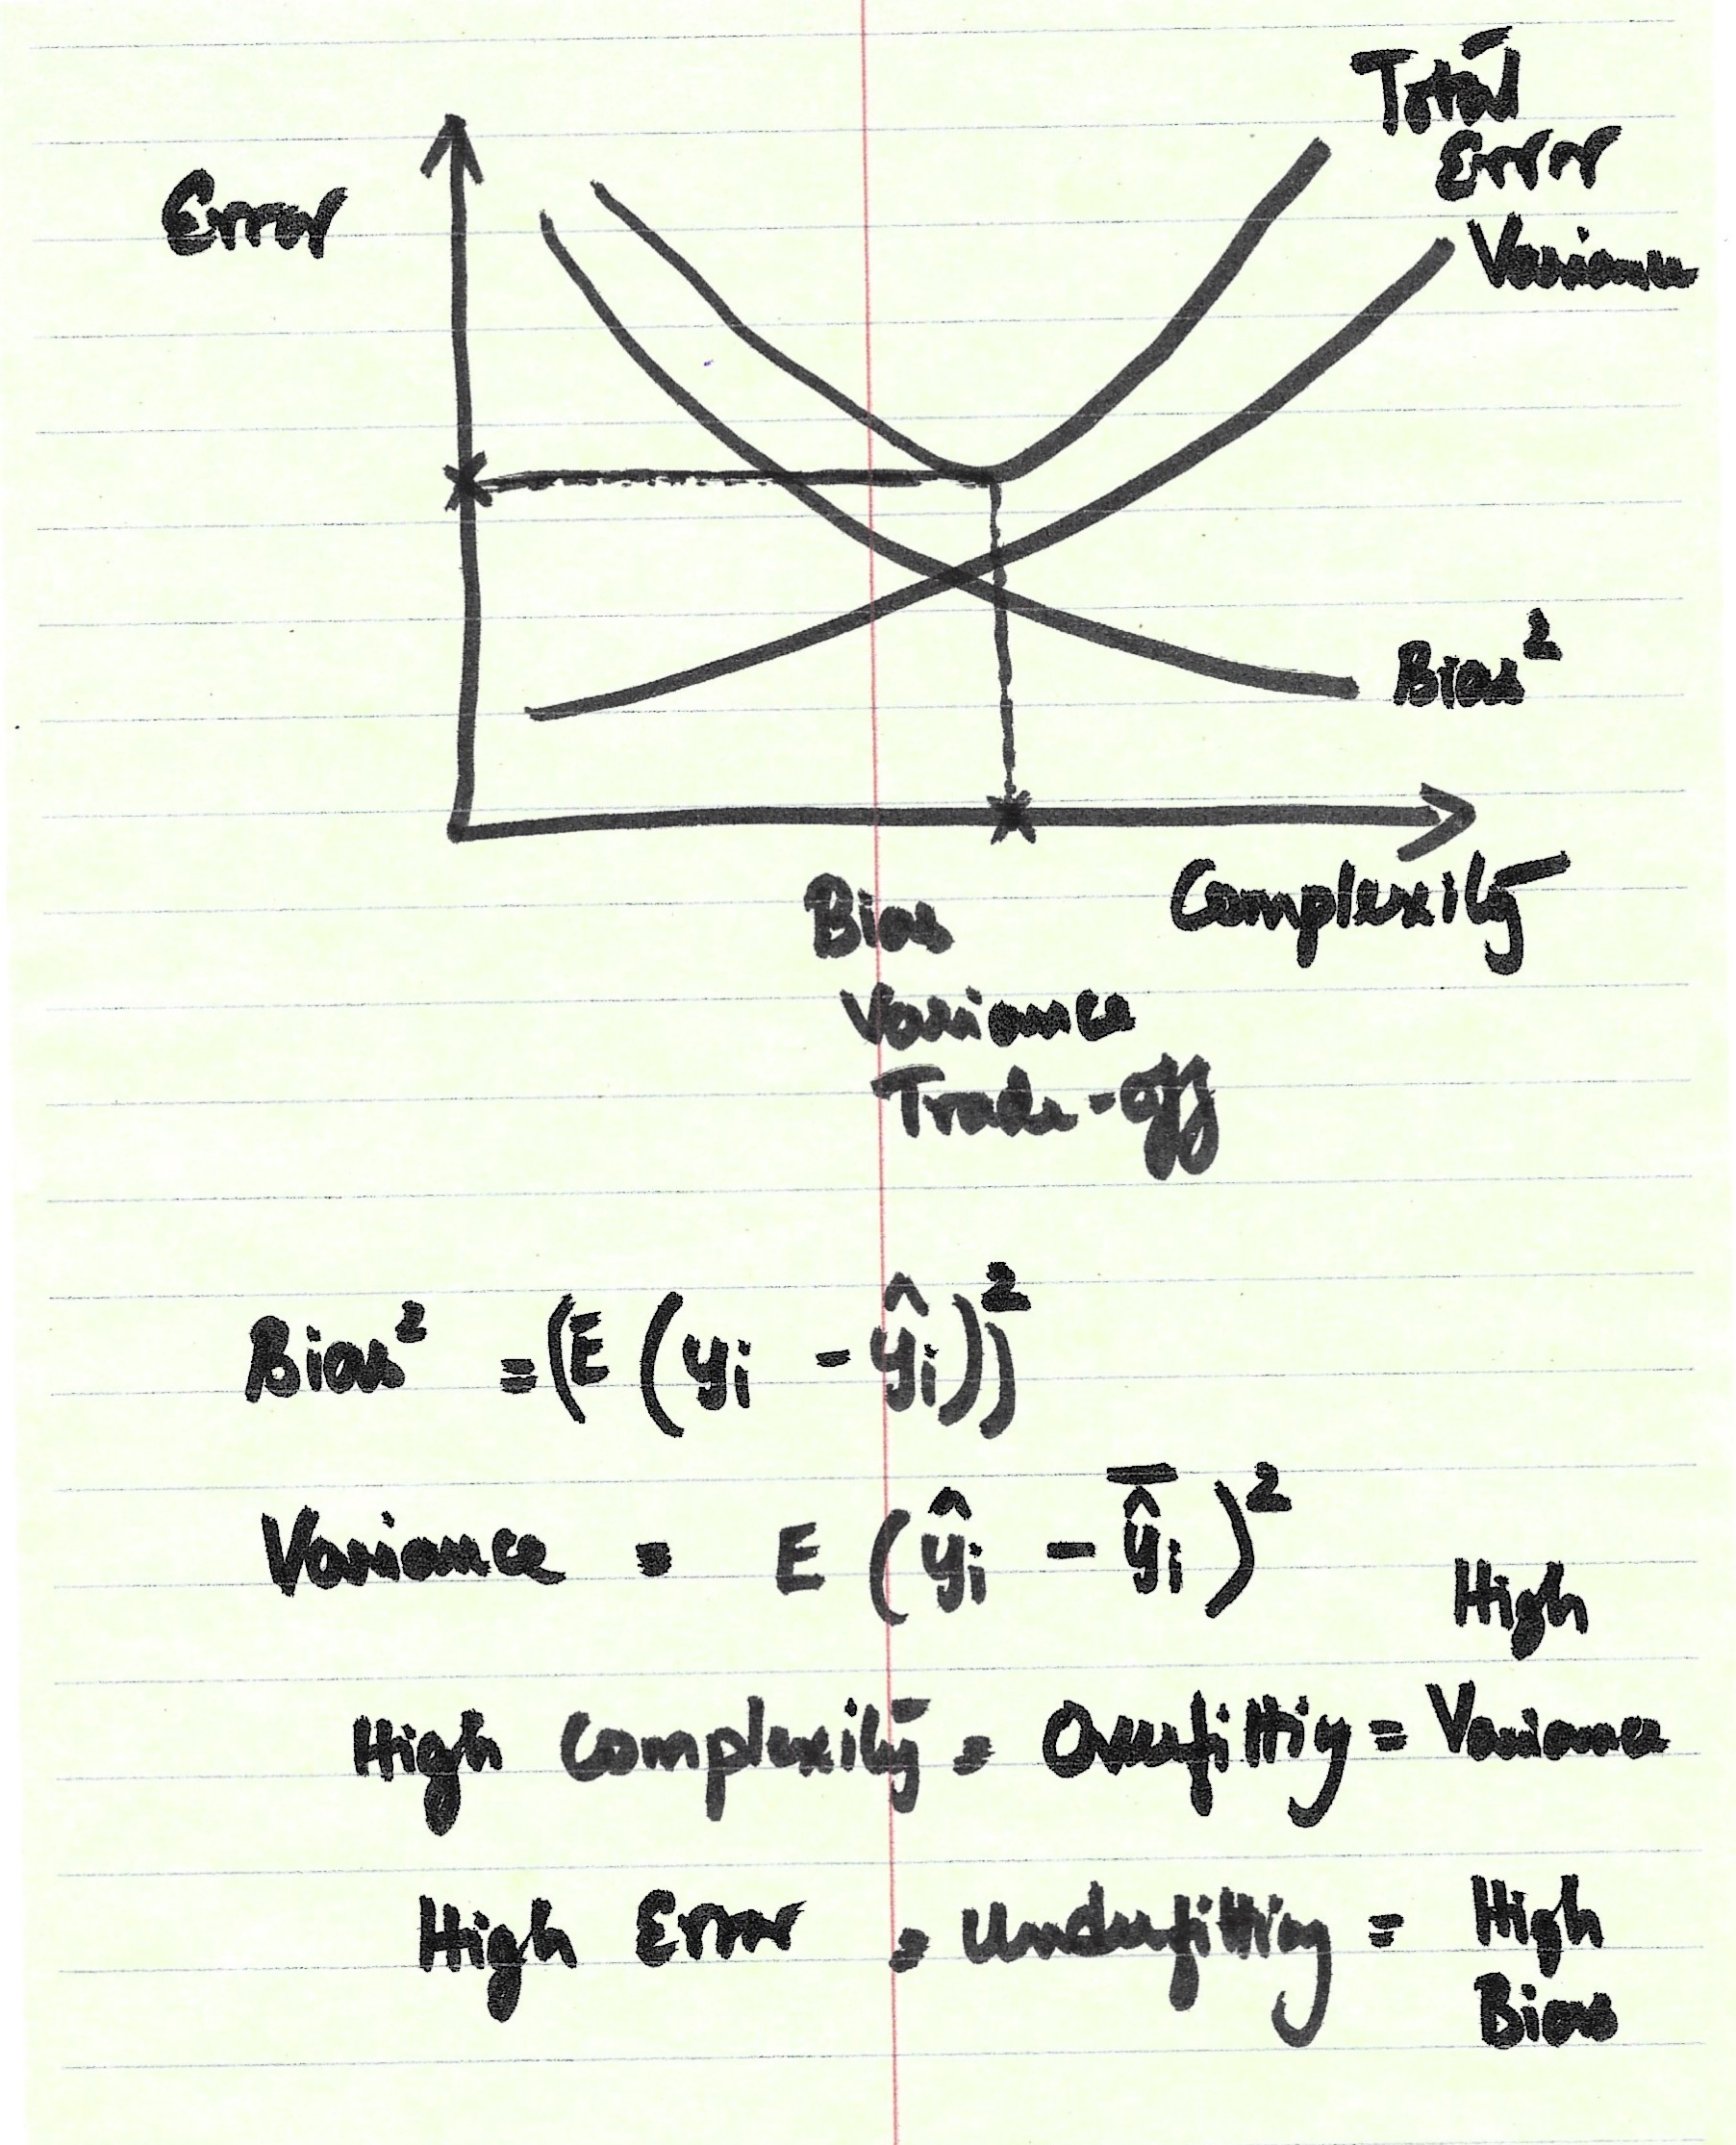 Total
Error
Error
Variance
Bias²
Complexity
Bias
Variance
Trade-off
Bias² = (E (yi - ŷi))²
Variance = E (ŷi - ŷ̅i)²
High
High Complexity = Overfitting = Variance
High Error = Underfitting = High
Bias